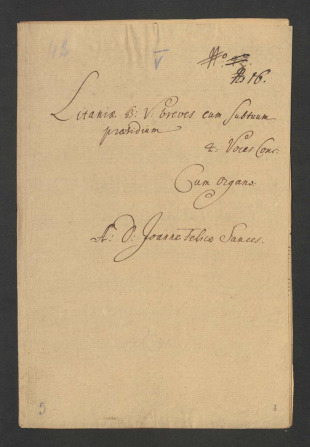 42
V
No.
B. 16.
Litaniæ B: V. breves cum Subtuum
præsidium
4. Voces Conc:
Cum Organo.
A: D: Joanne Felice Sances.
5